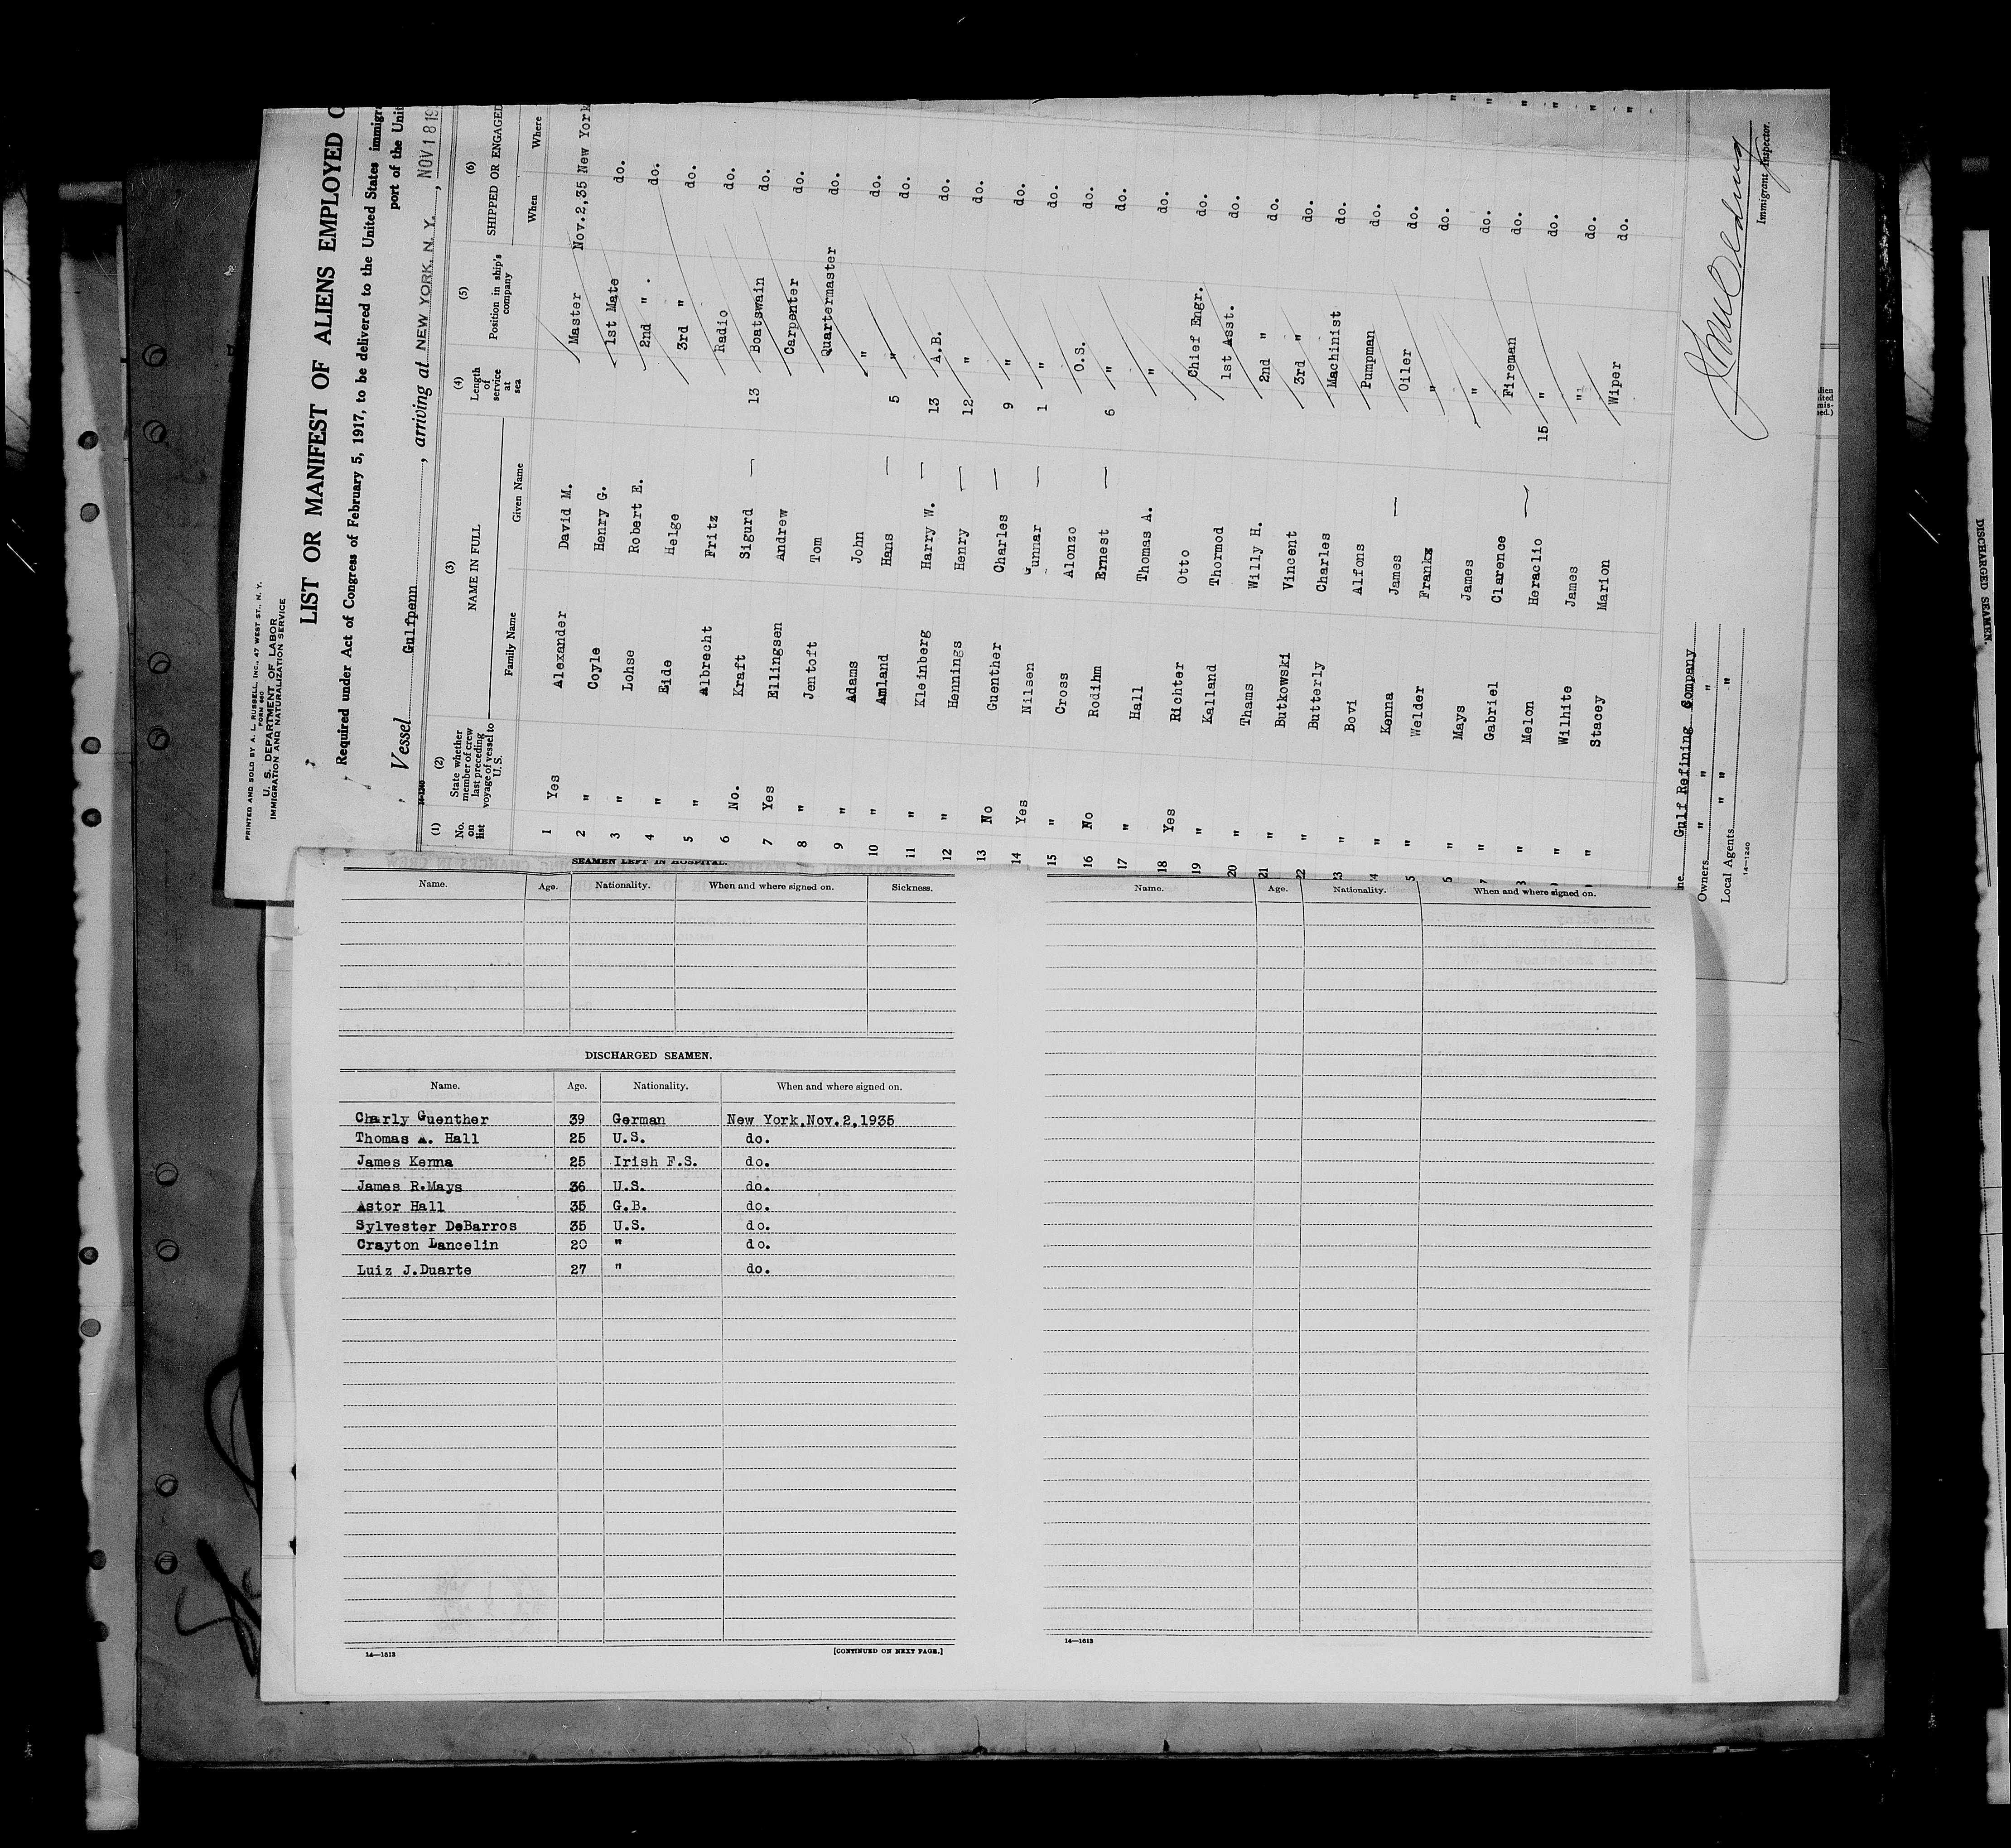 PRINTED AND SOLD BY A. L. RUSSELL, INC., 47 WEST ST., N. Y.
FORM 680
U. S. DEPARTMENT OF LABOR
IMMIGRATION AND NATURALIZATION SERVICE
LIST OR MANIFEST OF ALIENS EMPLOYED
Required under Act of Congress of February 5, 1917, to be delivered to the United States immigra
port of the Unit
Vessel Gulfpenn, arriving at NEW YORK, N. Y., NOV 18 19
14-1240
(1) (2) (3) (4) (5) (6)
No. on list State whether member of crew last preceding voyage of vessel to U. S. NAME IN FULL Length of service at sea Position in ship's company SHIPPED OR ENGAGED
Family Name Given Name When Where
1 Yes Alexander David M. Master Nov.2,35 New York
2 " Coyle Henry G. 1st Mate do.
3 " Lohse Robert E. 2nd " . do.
4 " Eide Helge 3rd " do.
5 " Albrecht Fritz Radio do.
6 No. Kraft Sigurd — 13 Boatswain do.
7 Yes Ellingsen Andrew Carpenter do.
8 " Jentoft Tom Quartermaster do.
9 " Adams John " do.
10 " Amland Hans — 5 " do.
11 " Kleinberg Harry W. — 13 A.B. do.
12 " Hennings Henry — 12 " do.
13 No Guenther Charles — 9 " do.
14 Yes Nilsen Gunnar — 1 " do.
15 " Cross Alonzo O.S. do.
16 No Rodihm Ernest — 6 " do.
17 " Hall Thomas A. " do.
18 Yes Richter Otto Chief Engr. do.
19 " Kalland Thormod 1st Asst. do.
20 " Thams Willy H. 2nd " do.
21 " Butkowski Vincent 3rd " do.
22 " Butterly Charles Machinist do.
23 " Bovi Alfons Pumpman do.
24 " Kenna James — Oiler do.
5 " Welder Frank " do.
6 " Mays James " do.
7 " Gabriel Clarence Fireman do.
8 " Melon Heraclio — 15 " do.
" Wilhite James " do.
" Stacey Marion Wiper do.
ne Gulf Refining Company
Owners " " "
Local Agents " "
14-1240
Immigrant Inspector.
SEAMEN LEFT IN HOSPITAL.
Name. Age. Nationality. When and where signed on. Sickness.
DISCHARGED SEAMEN.
Name. Age. Nationality. When and where signed on.
Charly Guenther 39 German New York,Nov.2,1935
Thomas A. Hall 25 U.S. do.
James Kenna 25 Irish F.S. do.
James R.Mays 36 U.S. do.
Astor Hall 35 G.B. do.
Sylvester DeBarros 35 U.S. do.
Crayton Lancelin 20 " do.
Luiz J.Duarte 27 " do.
14—1513
[CONTINUED ON NEXT PAGE.]
Name. Age. Nationality. When and where signed on.
14—1513
DISCHARGED SEAMEN.